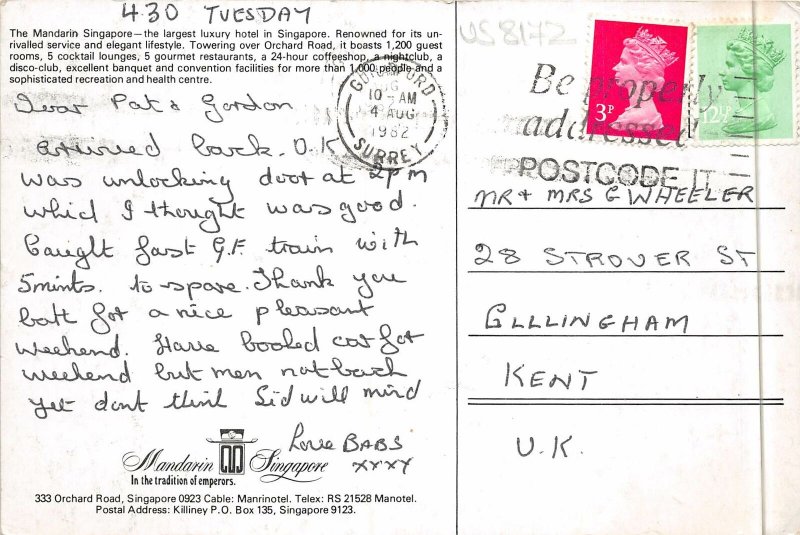 430 TUESDAY
The Mandarin Singapore—the largest luxury hotel in Singapore. Renowned for its un-
rivalled service and elegant lifestyle. Towering over Orchard Road, it boasts 1,200 guest
rooms, 5 cocktail lounges, 5 gourmet restaurants, a 24-hour coffeeshop, a nightclub, a
disco-club, excellent banquet and convention facilities for more than 1,000 people and a
sophisticated recreation and health centre.
Dear Pat & Gordon
arrived back O.K
was unlocking door at 2pm
which I thought was good.
Caught fast G.F. train with
5mints. to spare. Thank you
both for a nice pleasant
weekend. Have booked car for
weekend but men not back
yet dont think Sid will mind
Love BABS
xxxx
Mandarin Singapore
In the tradition of emperors.
333 Orchard Road, Singapore 0923 Cable: Manrinotel. Telex: RS 21528 Manotel.
Postal Address: Killiney P.O. Box 135, Singapore 9123.
US 8172
GUILDFORD
10 AM
4 AUG
1982
SURREY
Be properly
addressed
POSTCODE IT
3P
12½P
MR + MRS G WHEELER
28 STROVER ST
GLLLINGHAM
KENT
U.K.